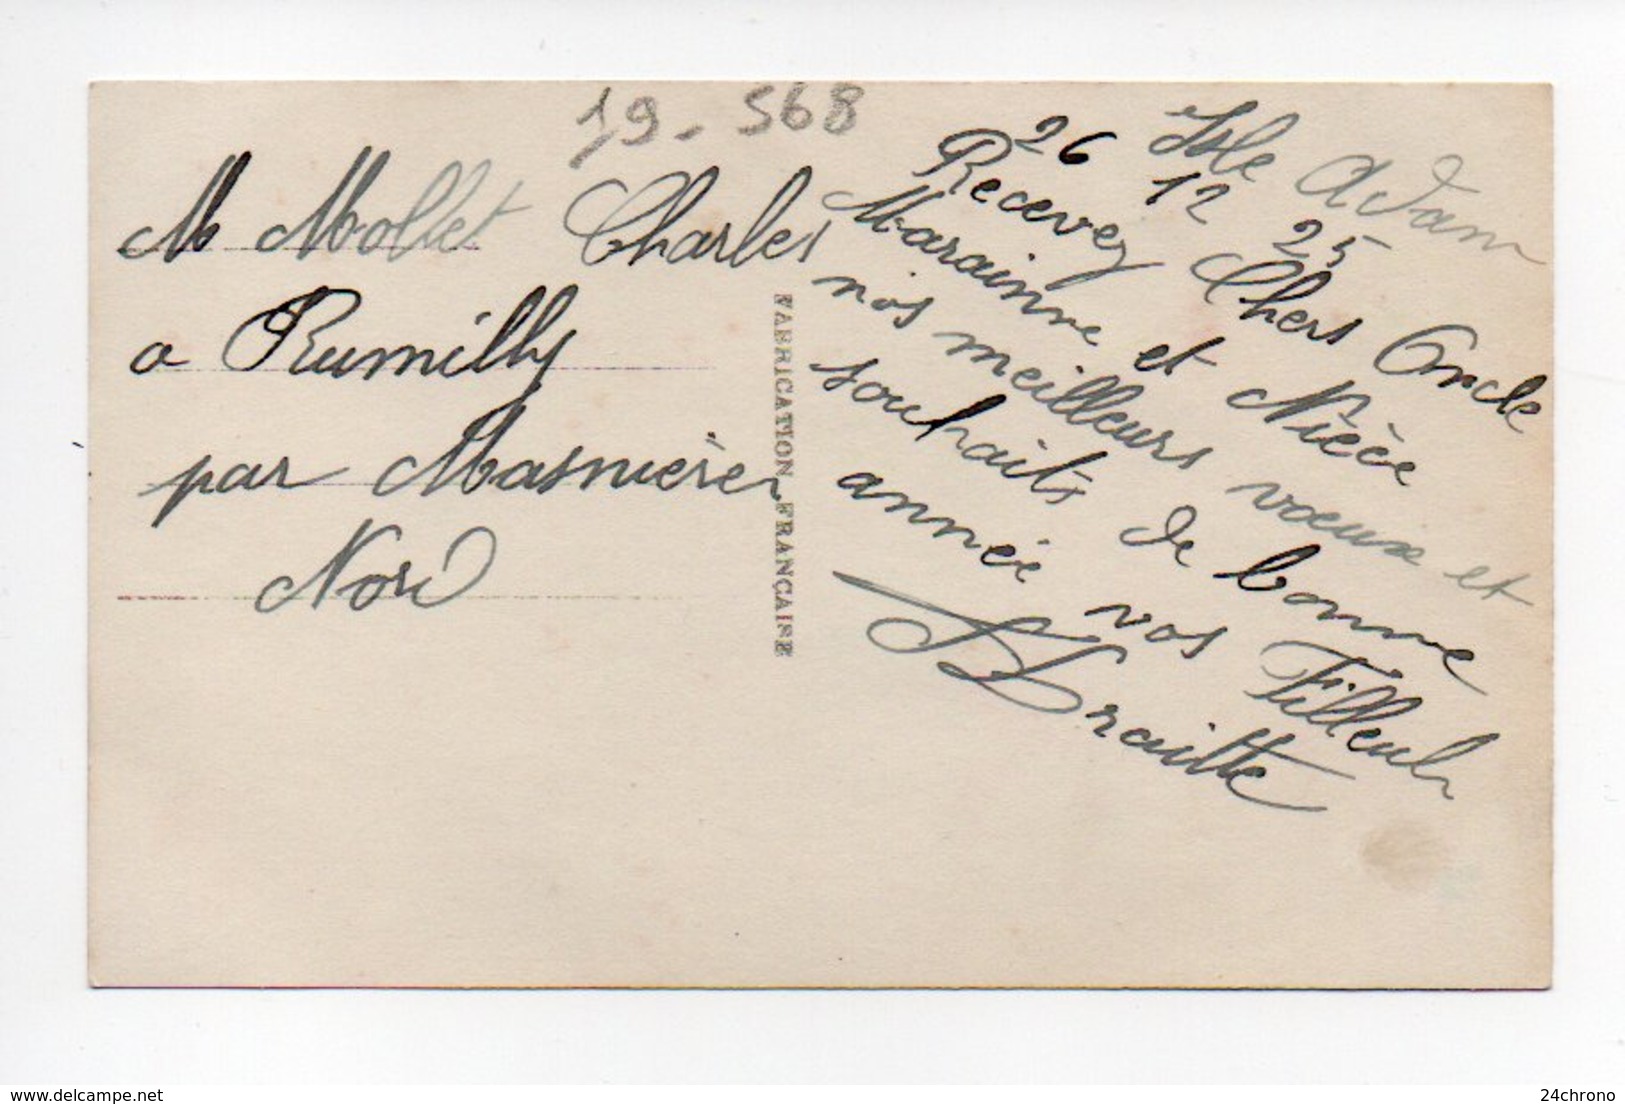 19 - 568
M Mollet Charles
a Rumilly
par Masnières
Nord
FABRICATION FRANÇAISE
Isle Adam
26 12 25
Recevez Chers Oncle
Marainne et Nièce
nos meilleurs voeux et
souhaits de bonne
année vos Filleuls
www.delcampe.net
24chrono